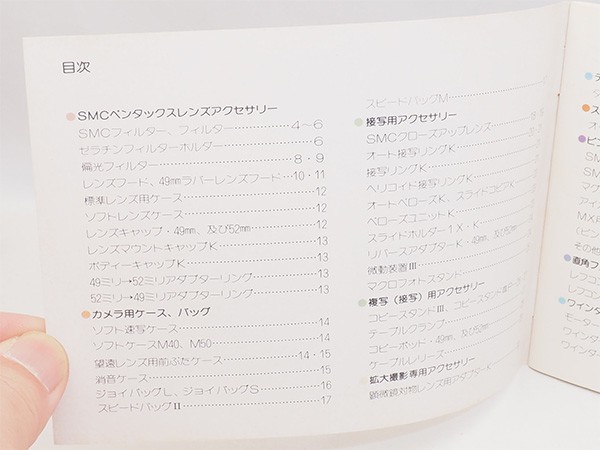 目次
●SMCペンタックスレンズアクセサリー
SMCフィルター、フィルター……………4〜6
ゼラチンフィルターホルダー……………6
偏光フィルター……………8・9
レンズフード、49㎜ラバーレンズフード……10・11
標準レンズ用ケース……………12
ソフトレンズケース……………12
レンズキャップ・49㎜、及び52㎜……………12
レンズマウントキャップK……………13
ボディーキャップK……………13
49ミリ→52ミリアダプターリング……………13
52ミリ→49ミリアダプターリング……………13
●カメラ用ケース、バッグ
ソフト速写ケース……………14
ソフトケースM40、M50……………14
望遠レンズ用前ぶたケース……………14・15
消音ケース……………15
ジョイバッグL、ジョイバッグS……………16
スピードバッグII……………17
スピードバッグM……………
●接写用アクセサリー
SMCクローズアップレンズ……………
オート接写リングK……………
接写リングK……………
ヘリコイド接写リングK……………
オートベローズK、スライドコピアK……………
ベローズユニットK……………
スライドホルダー1X・K……………
リバースアダプターK・49㎜、及び52㎜……………
微動装置III……………
マクロフォトスタンド……………
●複写（接写）用アクセサリー
コピースタンドIII、コピースタンド
テーブルクランプ……………
コピーポッド・49㎜、及び52㎜
ケーブルレリーズ……………
●拡大撮影専用アクセサリー
顕微鏡対物レンズ用アダプターK
●
●ス
オ
●ピ
SM
SM
マグ
アイ
MX用
(ピン
その他
●直角フ
レフコン
レフコン
●ワイン
モータ
ワイン
ワイン